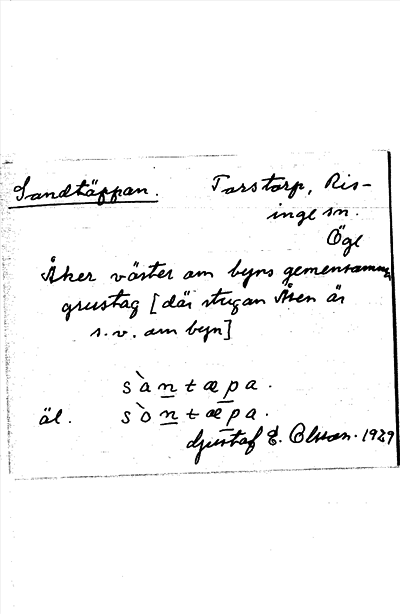 Sandtäppan. Torstorp, Ris-
inge sn.
Ögl
Åker väster om byns gemensamma
grustag [där stugan Åsen är
s.v. om byn]
sàn̲tæp̲a.
äl. sòn̲tæp̲a.
Gustaf E. Olsson. 1929